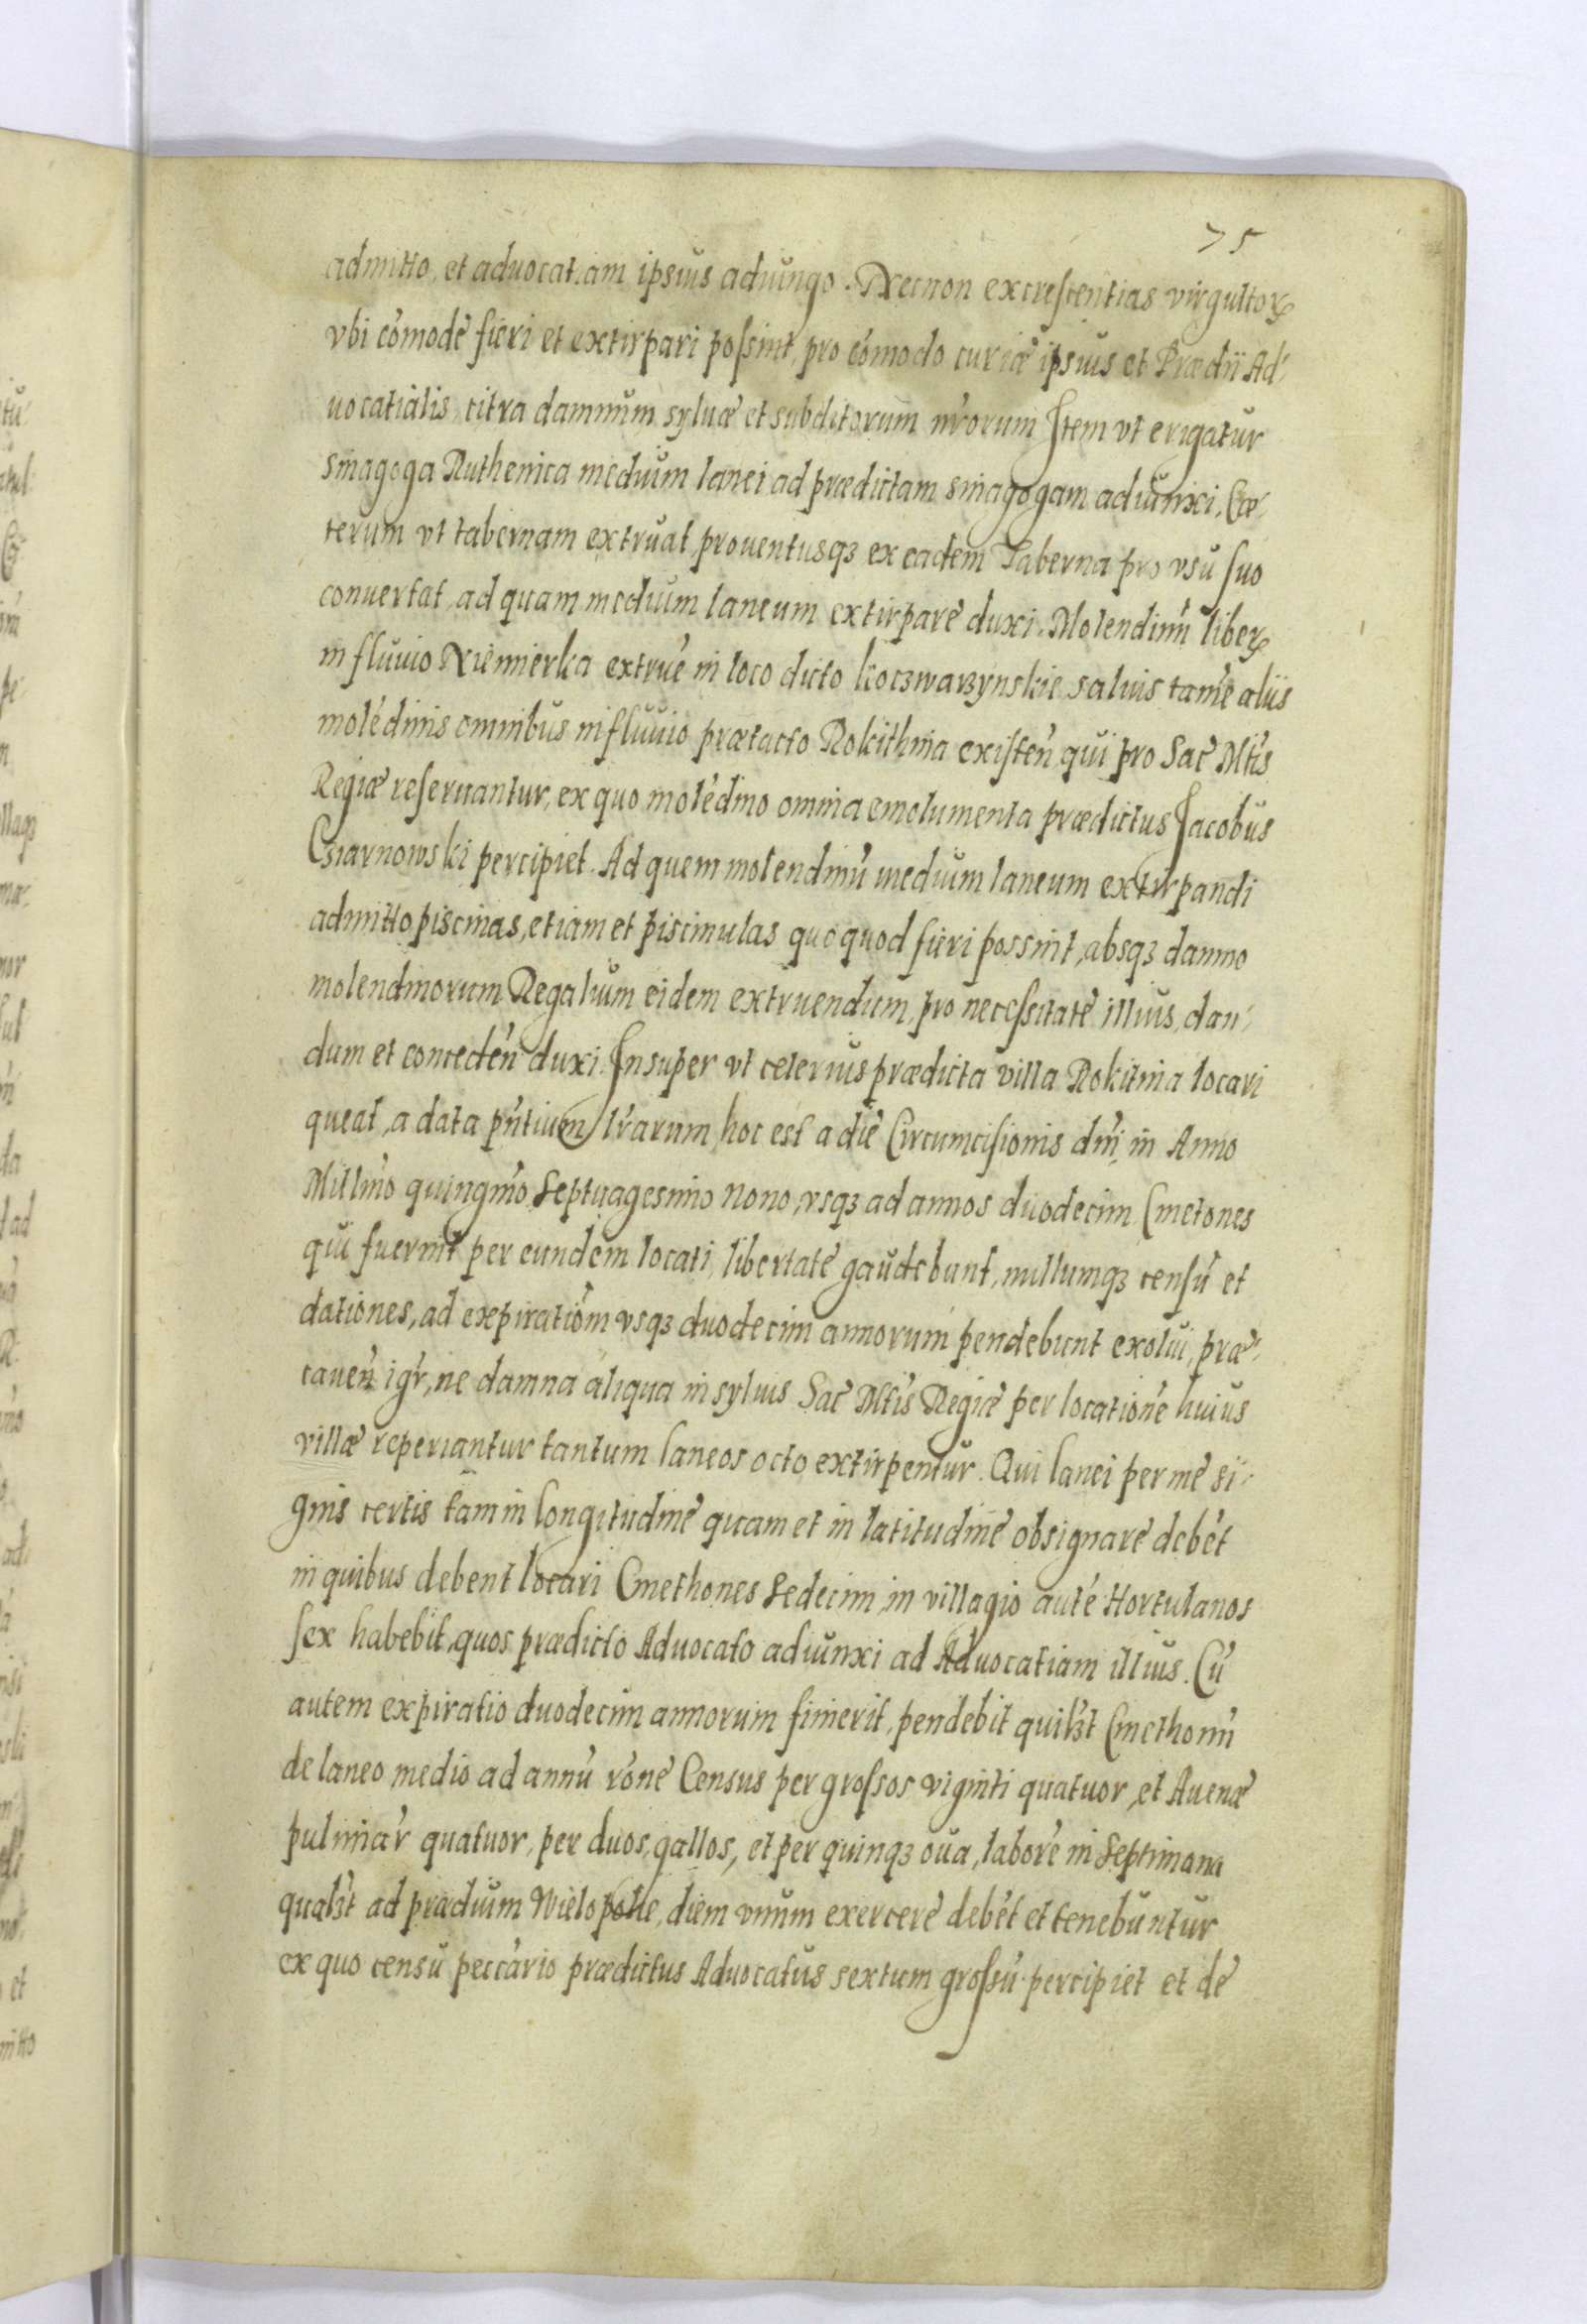 75
admitto, et aduocatiam ipsius adiungo. Necnon excrescentias virgultorꝝ
vbi cōmode fieri et extirpari possint, pro cōmodo curiæ ipsius et Prædii Ad-
uocatialis, citra damnum syluæ et subditorum nr̄orum Item vt erigatur
sinagoga Ruthenica medium lanei ad prædictam sinagogam adiunxi, Cæ-
terum vt tabernam extruat, prouentusqꝫ ex eadem Taberna pro vsu suo
conuertat, ad quam medium laneum extirpare duxi. Molendinū liberꝝ
in fluuio Niemierka extrue in loco dicto koczwarzynskie saluis tamē aliis
molēdinis omnibus in fluuio prætacto Rokithnia existen̄ qui pro Sac̄ Mtīs
Regiæ reseruantur, ex quo molēdino omnia emolumenta prædictus Jacobus
Csarnowski percipiet. Ad quem molendinū medium laneum extirpandi
admitto, piscinas, etiam et piscinulas quo quod fieri possint, absqꝫ damno
molendinorum Regalium eidem extruendum, pro necessitate illius, dan-
dum et conceden̄ duxi. Insuper vt celerius prædicta villa Rokitnia locari
queat, a data pn̄tium lr̄arum, hoc est a die Circumcisionis dn̄i, in Anno
Millm̄o quingm̄o Septuagesimo nono, vsqꝫ ad annos duodecim Cmetones
qui fuerint per eundem locati, libertate gaudebunt, nullumqꝫ censū et
dationes, ad expiratiōm vsqꝫ duodecim annorum pendebunt exolui, præ-
cauen̄ igr̄, ne damna aliqua in syluis Sac̄ Mtīs Regiæ per locationē huius
villæ reperiantur tantum laneos octo extirpentur. Qui lanei per me si-
gnis certis tam in longitudine quam et in latitudine obsignare debēt
in quibus debent locari Cmethones Sedecim, in villagio autē Hortulanos
sex habebit, quos prædicto Aduocato adiunxi ad Aduocatiam illius. Cū
autem expiratio duodecim annorum finierit, pendebit quilꝫt Cmethonū
de laneo medio ad annū rōne Census per grossos viginti quatuor, et Auenæ
pulmiar̄ quatuor, per duos, gallos, et per quinqꝫ oua, labore in Septimana
qualꝫt ad prædium Wielopolie, diem vnum exercere debēt et tenebuntur
ex quo censu peccārio prædictus Aduocatus sextum grossū percipiet et de